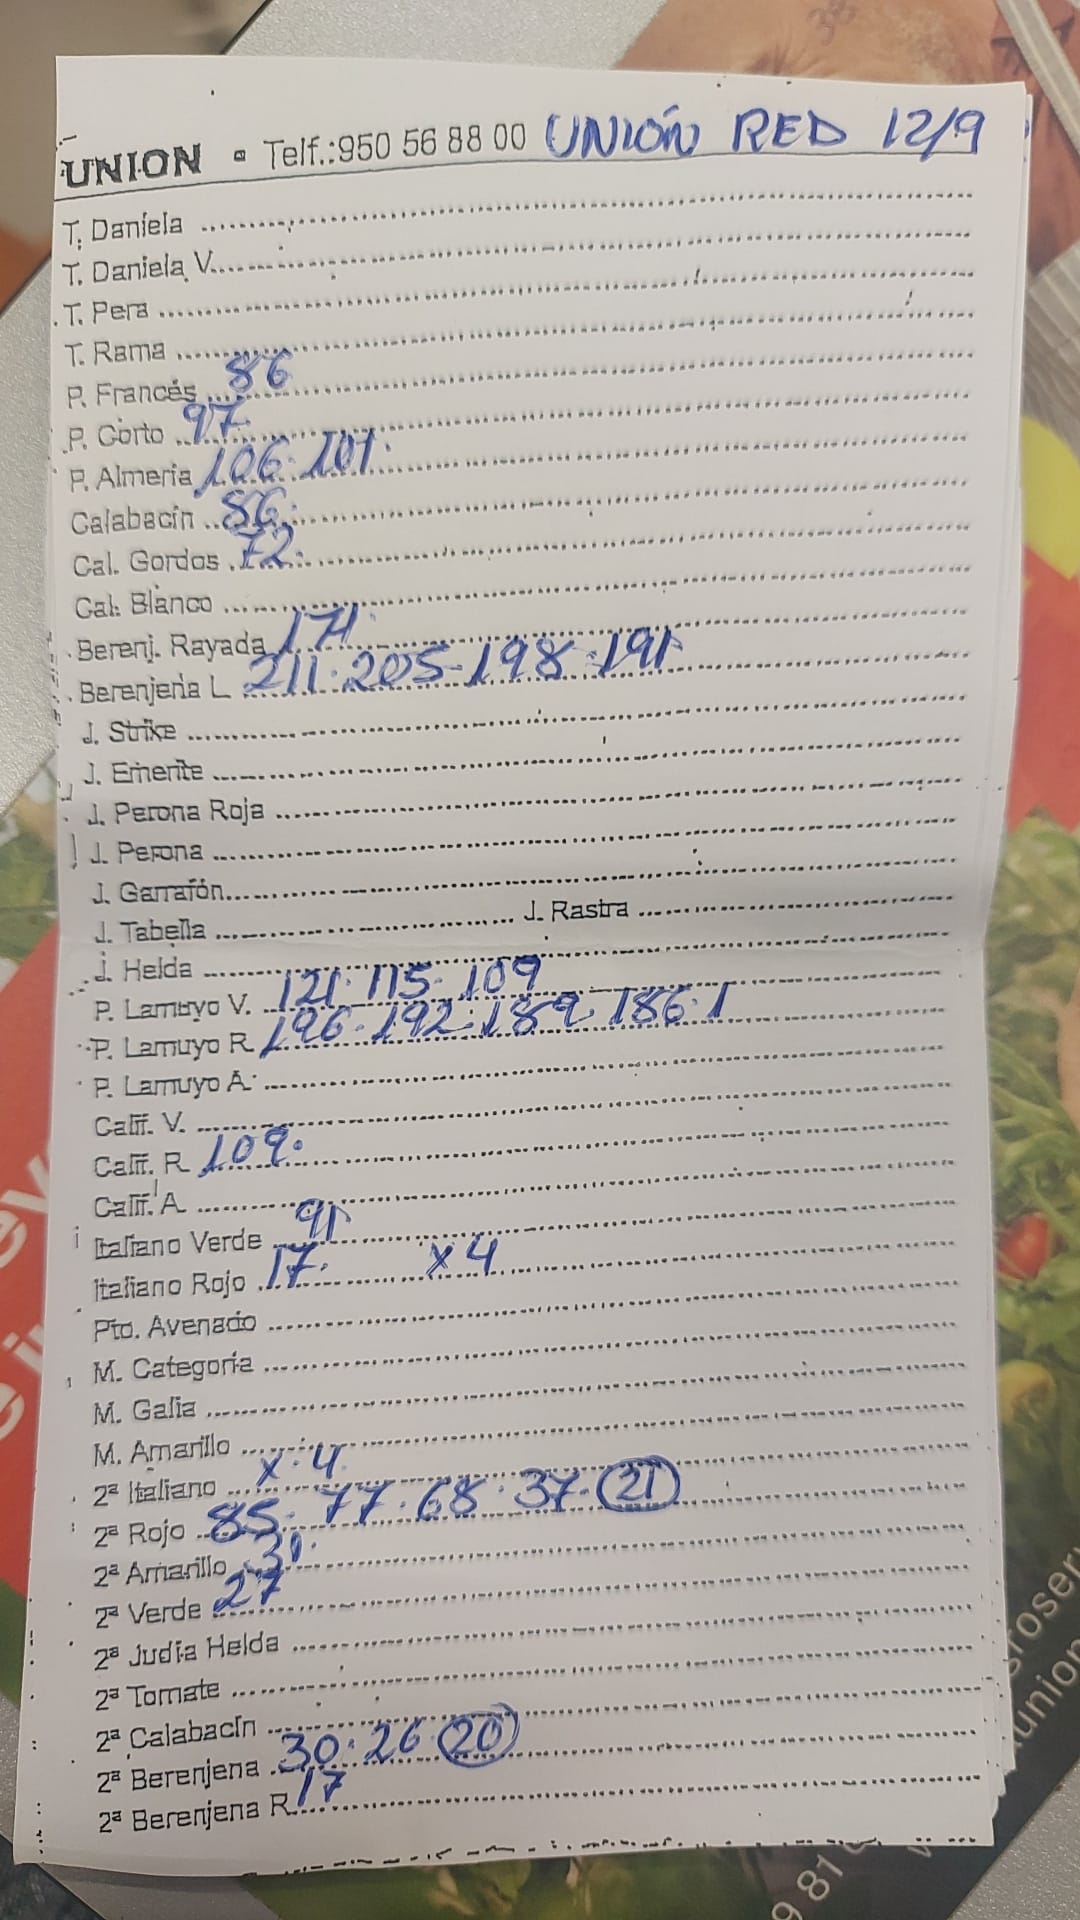 UNION • Telf.: 950 56 88 00 UNIÓN RED 12/9
T. Daniela
T. Daniela V.
T. Pera
T. Rama
P. Francés 86
P. Corto 97
P. Almería 106. 101.
Calabacín 86.
Cal. Gordos 72.
Cal. Blanco
Berenj. Rayada 171.
Berenjena L 211. 205-198.191
J. Strike
J. Emerite
J. Perona Roja
J. Perona
J. Garrafón
J. Tabella J. Rastra
J. Helda
P. Lamuyo V. 121. 115. 109
P. Lamuyo R 196. 192. 189. 186. 1
P. Lamuyo A.
Calif. V.
Calif. R 109.
Calif. A
Italiano Verde 91
Italiano Rojo 17. x 4
Pto. Avenado
M. Categoría
M. Galia
M. Amarillo
2ª Italiano x. 4
2ª Rojo 85. 77. 68. 37. 21
2ª Amarillo 31.
2ª Verde 27
2ª Judía Helda
2ª Tomate
2ª Calabacín
2ª Berenjena 30. 26 20
2ª Berenjena R. 17